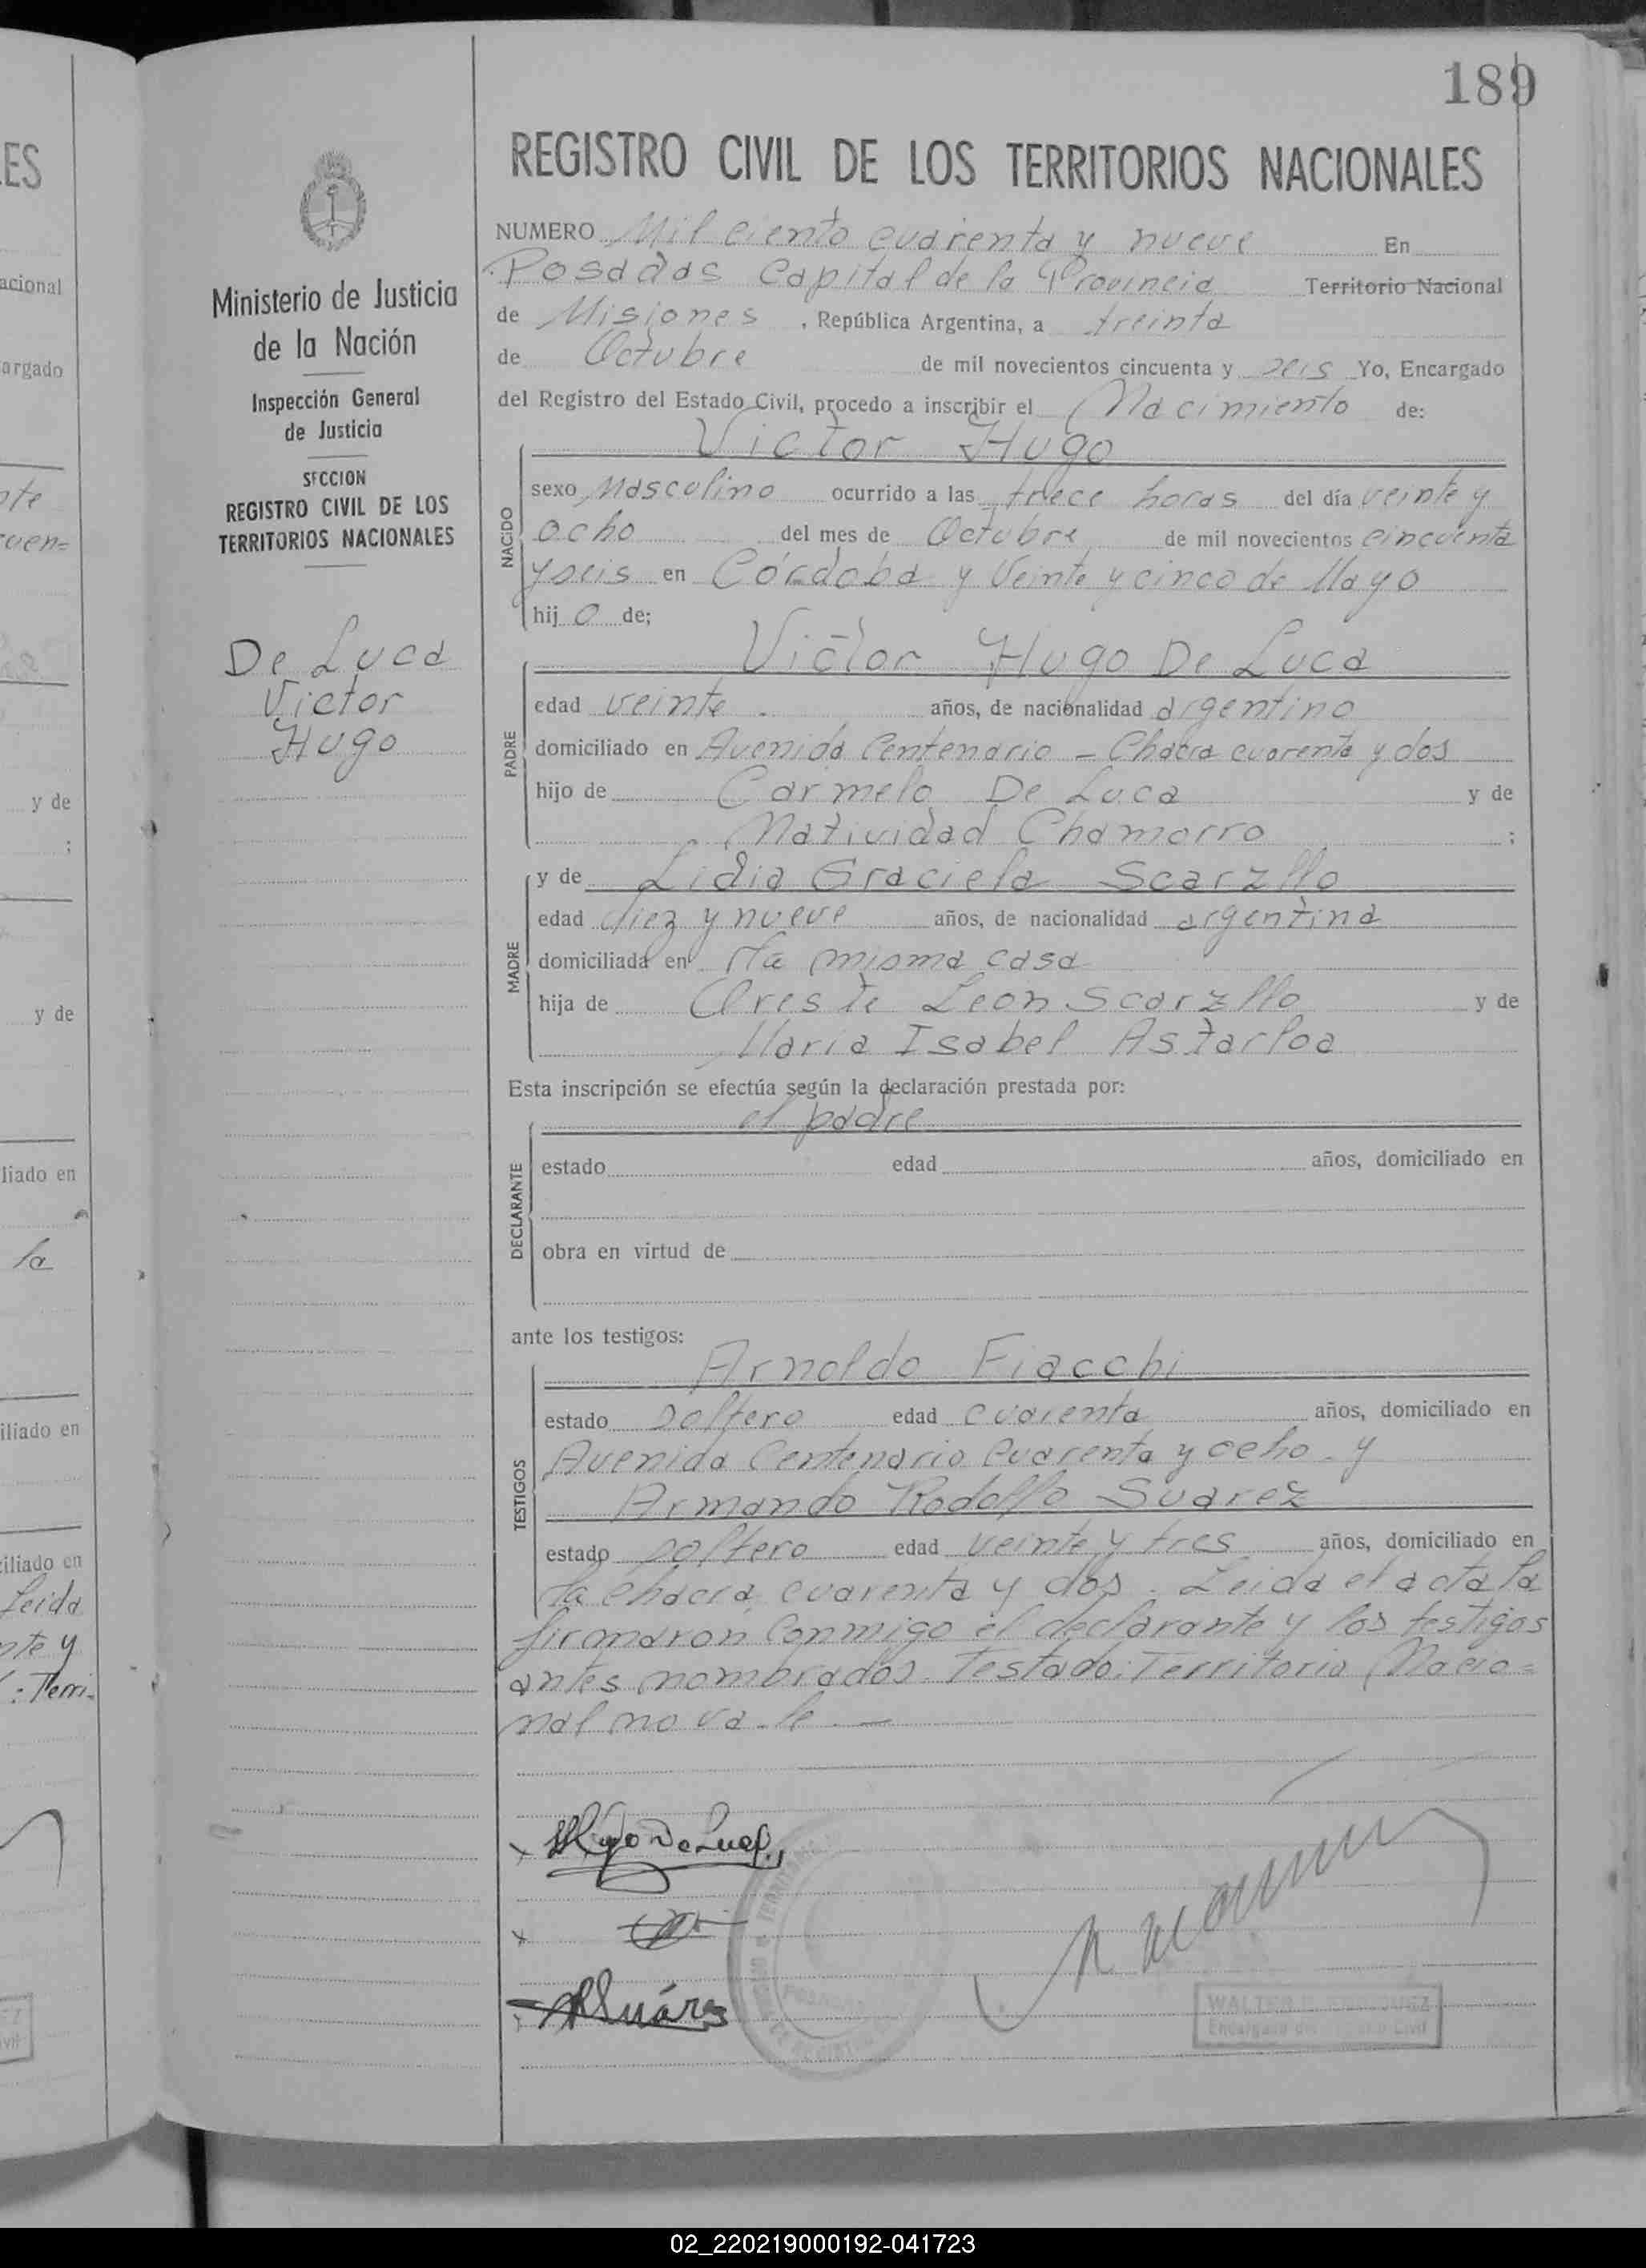 189
REGISTRO CIVIL DE LOS TERRITORIOS NACIONALES
NUMERO Mil ciento cuarenta y nueve En
Posadas Capital de la Provincia Territorio Nacional
de Misiones , República Argentina, a treinta
de Octubre de mil novecientos cincuenta y seis Yo, Encargado
del Registro del Estado Civil, procedo a inscribir el Nacimiento de:
Victor Hugo
NACIDO
sexo Masculino ocurrido a las trece horas del día veinte y
ocho del mes de Octubre de mil novecientos cincuenta
y seis en Córdoba y Veinte y cinco de Mayo
hijo de;
Victor Hugo De Luca
PADRE
edad veinte años, de nacionalidad argentino
domiciliado en Avenida Centenario - Chacra cuarenta y dos
hijo de Carmelo De Luca y de
Natividad Chamorro ;
y de Lidia Graciela Scarzllo
MADRE
edad diez y nueve años, de nacionalidad argentina
domiciliada en la misma casa
hija de Oreste Leon Scarzllo y de
Maria Isabel Astarloa
Esta inscripción se efectúa según la declaración prestada por:
el padre
DECLARANTE
estado edad años, domiciliado en
obra en virtud de
ante los testigos:
Arnoldo Fiacchi
TESTIGOS
estado soltero edad cuarenta años, domiciliado en
Avenida Centenario cuarenta y ocho - y
Armando Rodolfo Suarez
estado soltero edad veinte y tres años, domiciliado en
la chacra cuarenta y dos. Leida el acta la
firmaron conmigo el declarante y los testigos
antes nombrados. Testado: Territorio Nacio=
nal no va-le —
Ministerio de Justicia
de la Nación
Inspección General
de Justicia
SECCION
REGISTRO CIVIL DE LOS
TERRITORIOS NACIONALES
De Luca
Victor
Hugo
ES
acional
argado
y de
;
y de
liado en
la
iliado en
ciliado en
Leida
nte y
: Terri-
Hugo De Luca
RSuárez
WALTER
Encargado del Registro Civil
02_220219000192-041723